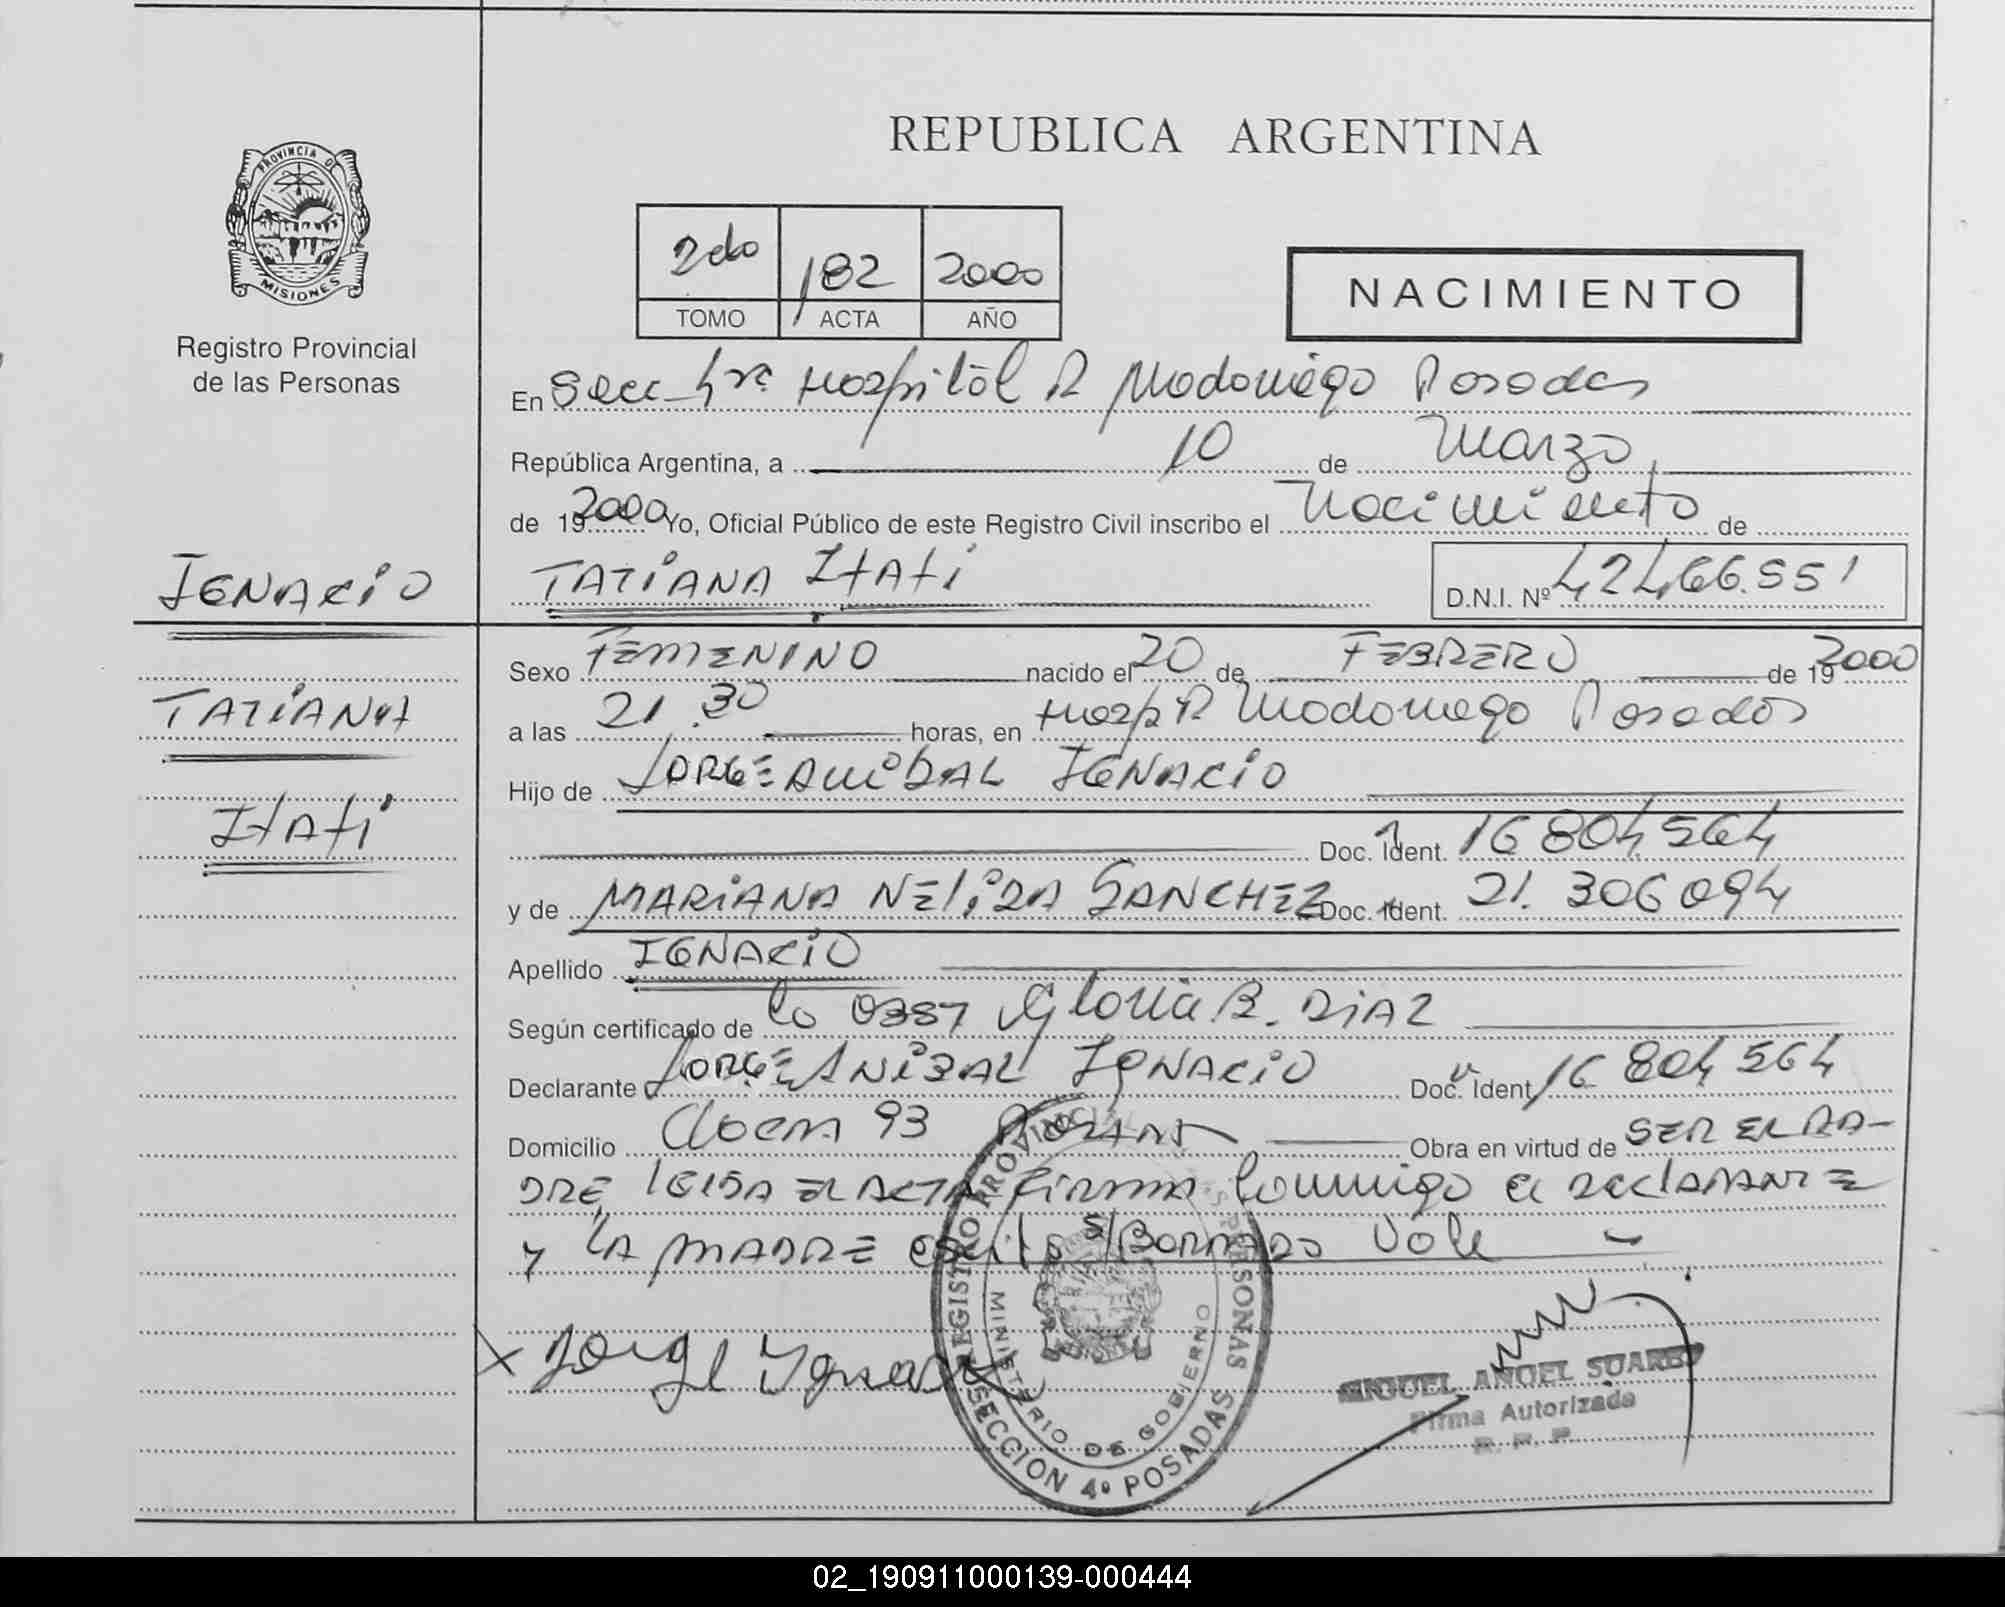 REPUBLICA ARGENTINA
PROVINCIA DE
MISIONES
Registro Provincial
de las Personas
2do 182 2000
TOMO ACTA AÑO
NACIMIENTO
En Secc 4ta Hospital R Madariaga Posadas
República Argentina, a 10 de Marzo
de 19 2000 Yo, Oficial Público de este Registro Civil inscribo el Nacimiento de
IGNACIO
TATIANA ITATI
D.N.I. Nº 42466.551
Sexo FEMENINO nacido el 20 de FEBRERO de 19 2000
TATIANA
a las 21.30 horas, en Hosp R Madariaga Posadas
Hijo de JORGE ANIBAL IGNACIO
ITATI
Doc. Ident. 16 804 564
y de MARIANA NELIDA SANCHEZ Doc. Ident. 21.306 094
Apellido IGNACIO
Según certificado de Gloria B. DIAZ
Declarante JORGE ANIBAL IGNACIO Doc. Ident. 16 804 564
Domicilio 93 Obra en virtud de SER EL PA-
DRE, LEIDA EL ACTA FIRMA Conmigo el DECLARANTE
y LA MADRE s/BORRADO Vale
x Jorge Ignacio
REGISTRO PROVINCIAL PERSONAS
MINISTERIO DE GOBIERNO
SECCION 4º POSADAS
MIGUEL ANGEL SUAREZ
Firma Autorizada
R. P. P.
02_190911000139-000444